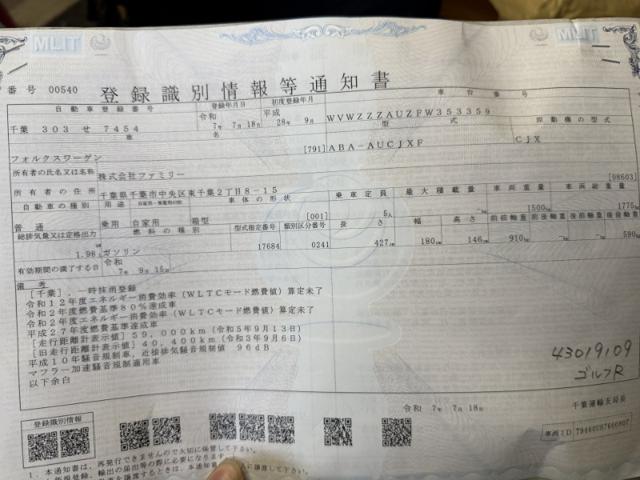 MLIT
MLIT
番号 00540
登録識別情報等通知書
自動車登録番号 登録年月日 初度登録年月 車台番号
千葉 303 せ 7454 令和 7年 7月18日 平成 28年 9月 WVWZZZAUZFW353359
型式 原動機の型式
フォルクスワーゲン [791] ABA-AUCJXF CJX
所有者の氏名又は名称 株式会社ファミリー
所有者の住所 千葉県千葉市中央区東千葉2丁目8-15 [08603]
自動車の種別 用途 自家用・事業用の別 車体の形状 乗車定員 最大積載量 車両重量 車両総重量
普通 乗用 自家用 箱型 [001] 5人 1500kg 1775kg
総排気量又は定格出力 燃料の種類 型式指定番号 類別区分番号 長さ 幅 高さ 前前軸重 前後軸重 後前軸重 後後軸重
1.98 ガソリン 17684 0241 427cm 180cm 146cm 910kg 590kg
有効期間の満了する日 令和 7年 9月15日
備考
[千葉],一時抹消登録
令和12年度エネルギー消費効率(WLTCモード燃費値)算定未了
令和2年度燃費基準80%達成車
令和2年度エネルギー消費効率(WLTCモード燃費値)算定未了
平成27年度燃費基準達成車
[走行距離計表示値]59,000km(令和5年9月13日)
[旧走行距離計表示値]40,400km(令和3年9月6日)
平成10年騒音規制車,近接排気騒音規制値 96dB
マフラー加速騒音規制適用車
以下余白
43019109
ゴルフR
令和 7年 7月18日
千葉運輸支局長
登録識別情報
車両ID
1.本通知書は、再発行できませんので大切に保管して下さい。